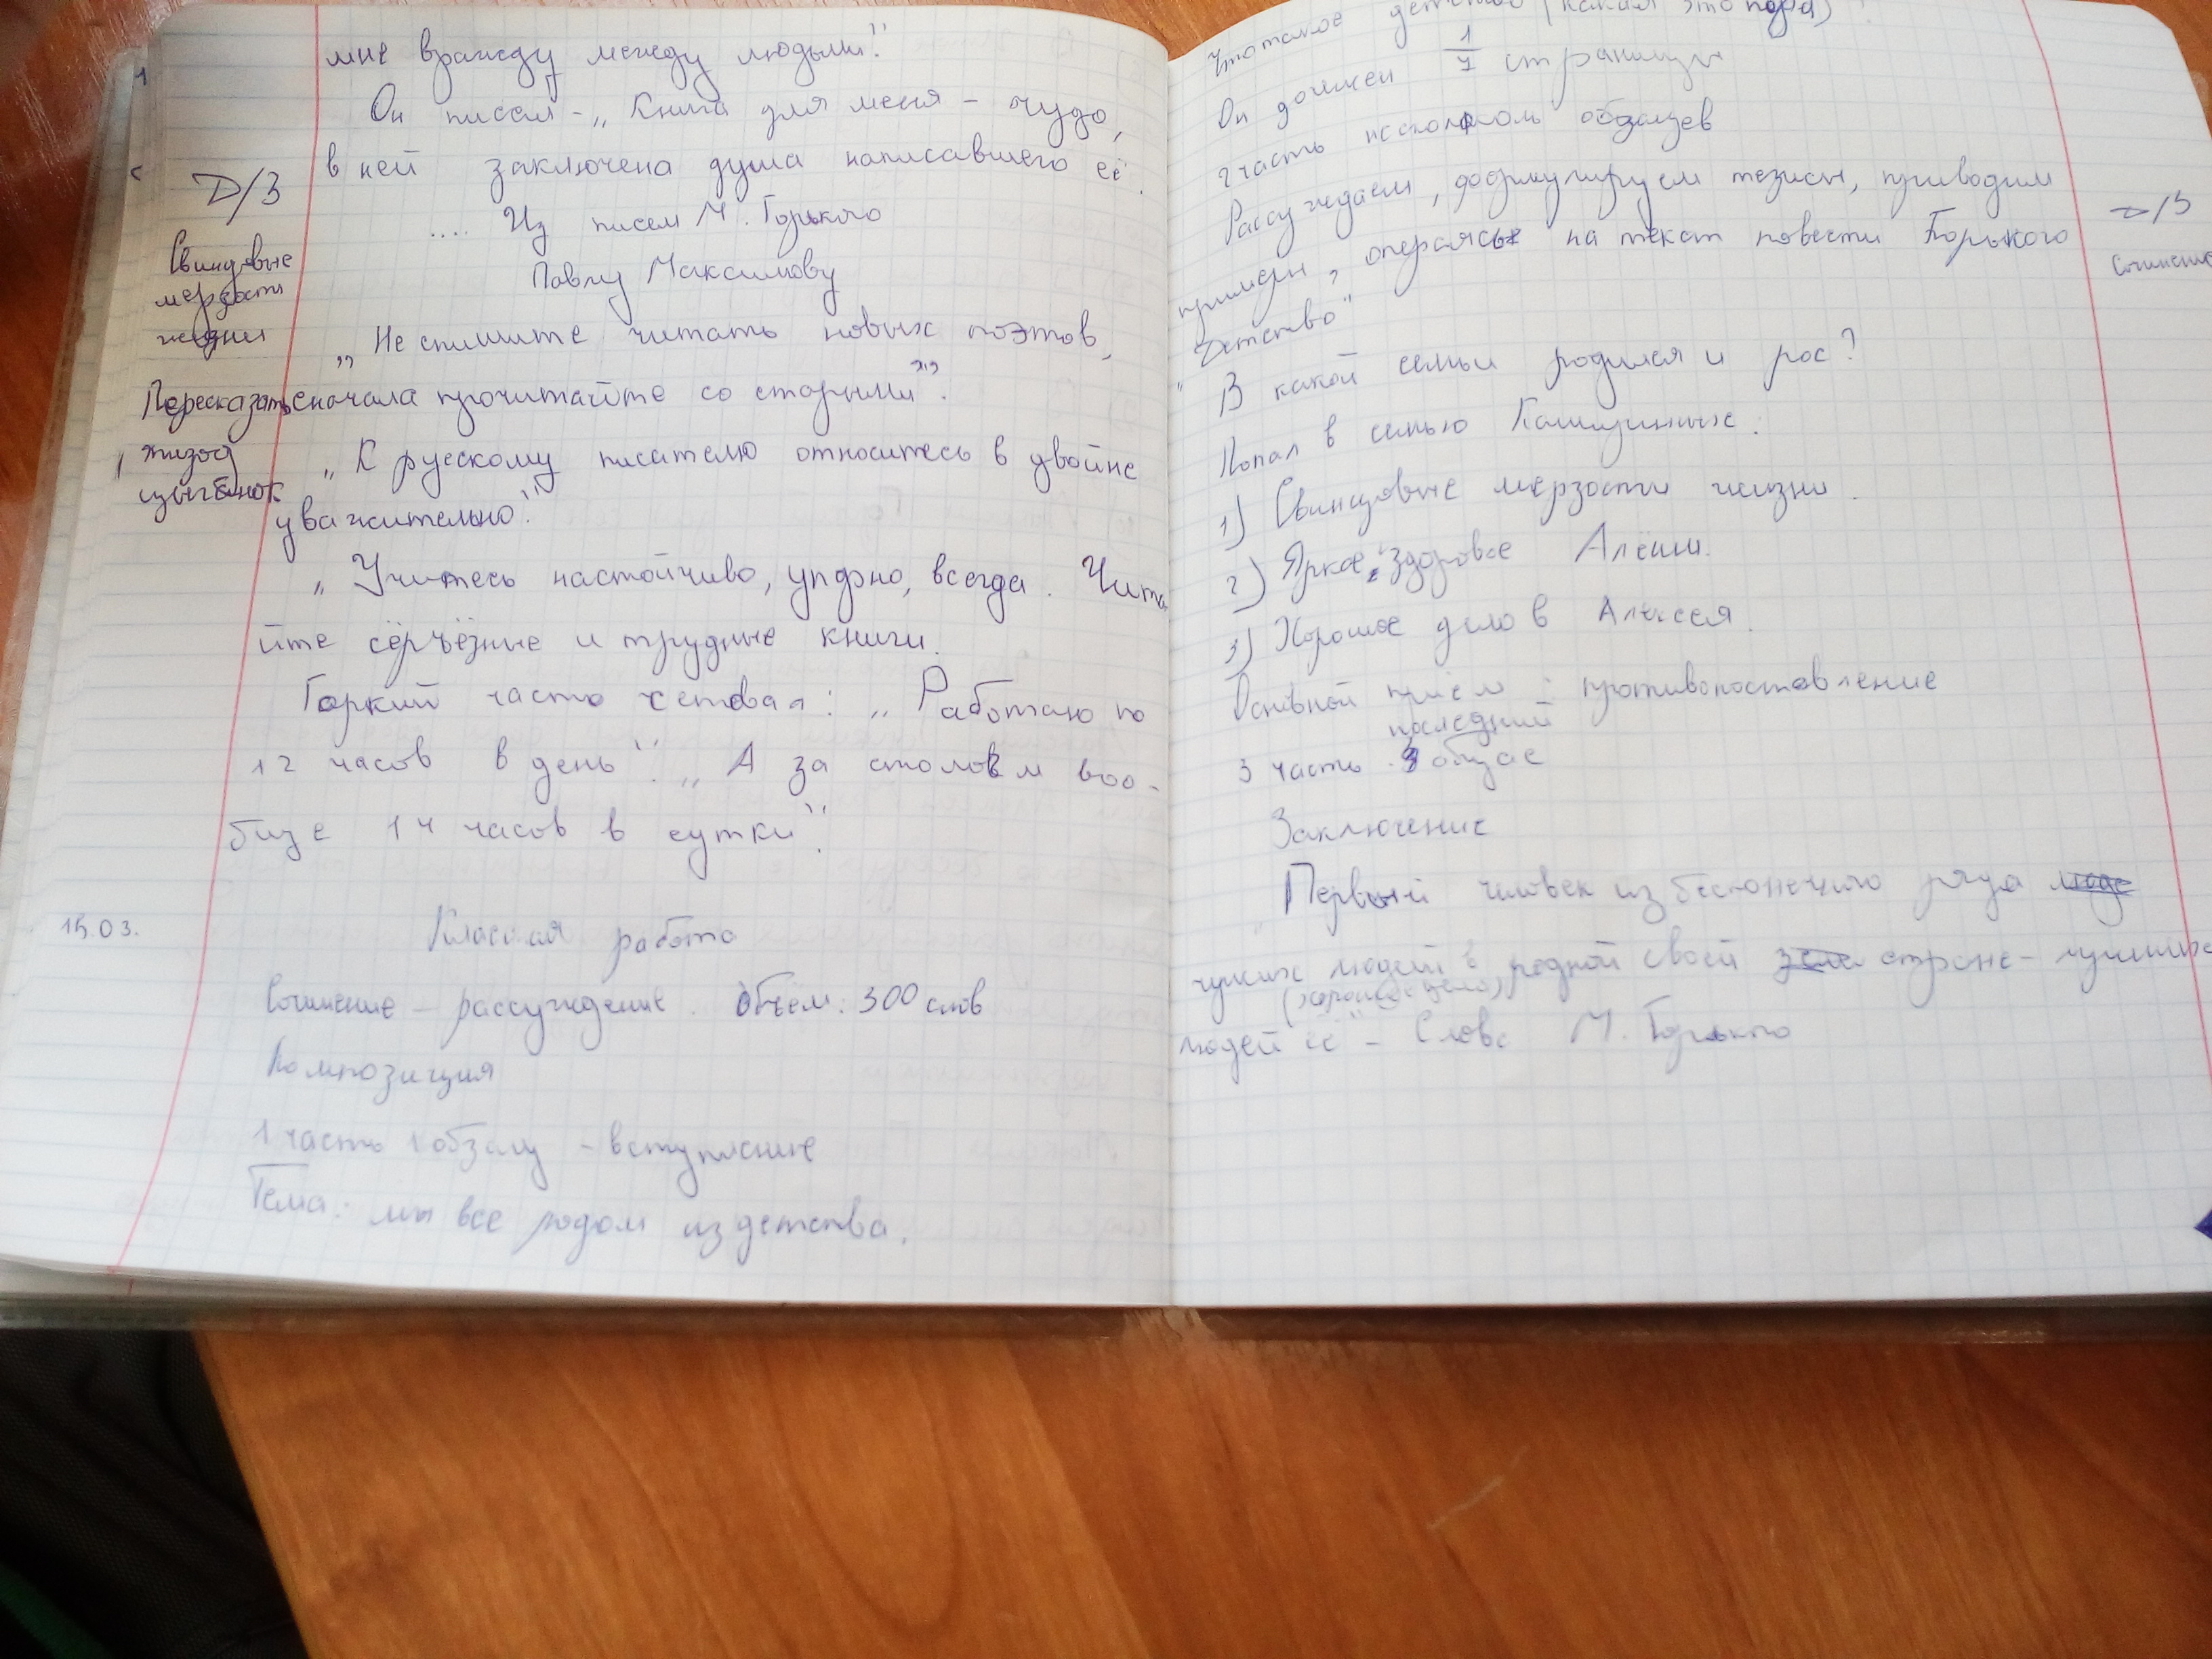 мне вражду между людьми."
Он писал - „Книга для меня - чудо,
в ней заключена душа написавшего её.
.... Из писем М. Горького
Павлу Максимову
„Не спишите читать новых поэтов,
сначала прочитайте со старыми".
„К русскому писателю относитесь в двойне
уважительно".
„Учитесь настойчиво, упорно, всегда. Чита
йте сёръёзные и трудные книги.
Горкий часто : „Работаю по
12 часов в день". „А за столом воо-
бще 14 часов в сутки".
Д/З
Свинцовые
мерзости
жизни
Пересказать
эпизод
цыганок
15.03.
Классная работа
Сочинение - рассуждение. Объём: 300 слов
Композиция
1 часть 1 обзац - вступление
Тема: мы все родом из детства.
Что такое детство (какая это пора)?
Он должен 1/7 страницы
2 часть обзацев
Рассуждаем, формулируем тезисы, приводим
примеры, опираясь на текст повести Горького
„Детство"
В какой семьи родился и рос?
Попал в семью Кашириных:
1) Свинцовые мерзости жизни.
2) Яркое, здоровое Алёши.
3) Хорошее дело в Алексея.
Основной приём: противопоставление
последний
3 часть обзац
Заключение
„Первый человек из бесконечного ряда
чужих людей в родной своей стране - лучших
(хорошее дело)
людей её" - Слова М. Горького
Д/З
сочинение